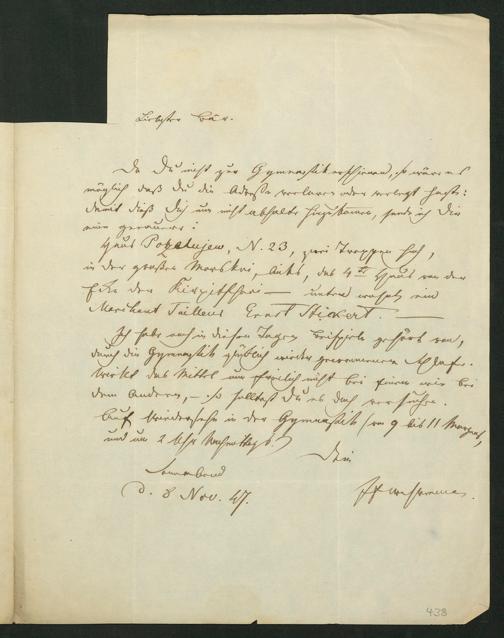 Liebster Bär.
Da Du nicht zur Gymnastik erschienen, so wäre es
möglich daß Du die Adresse verloren oder verlegt hast:
damit dieß Dich nur nicht abhalte hinzukommen, sende ich Dir
eine genauere:
Haus Pozelujew, N. 23, zwei Treppen hoch,
in der großen Morskoi, links, das 4te Haus von der
Ecke der Kirpitschnoi — unten wohnt ein
Merchant Tailleur Ernst Stickert. —
Ich habe noch in diesen Tagen Beispiele gehört von,
durch die Gymnastik glücklich wieder gewonnenem Schlaf.
Wirkt das Mittel nun freilich nicht bei Einem wie bei
dem Anderen, – so solltest Du es doch versuchen.
Auf Wiedersehn in der Gymnastik (von 9 bis 11 Morgens,
und um 2 Uhr Nachmittags.)
Dein
Sonnabend
d. 8 Nov. 47.
438